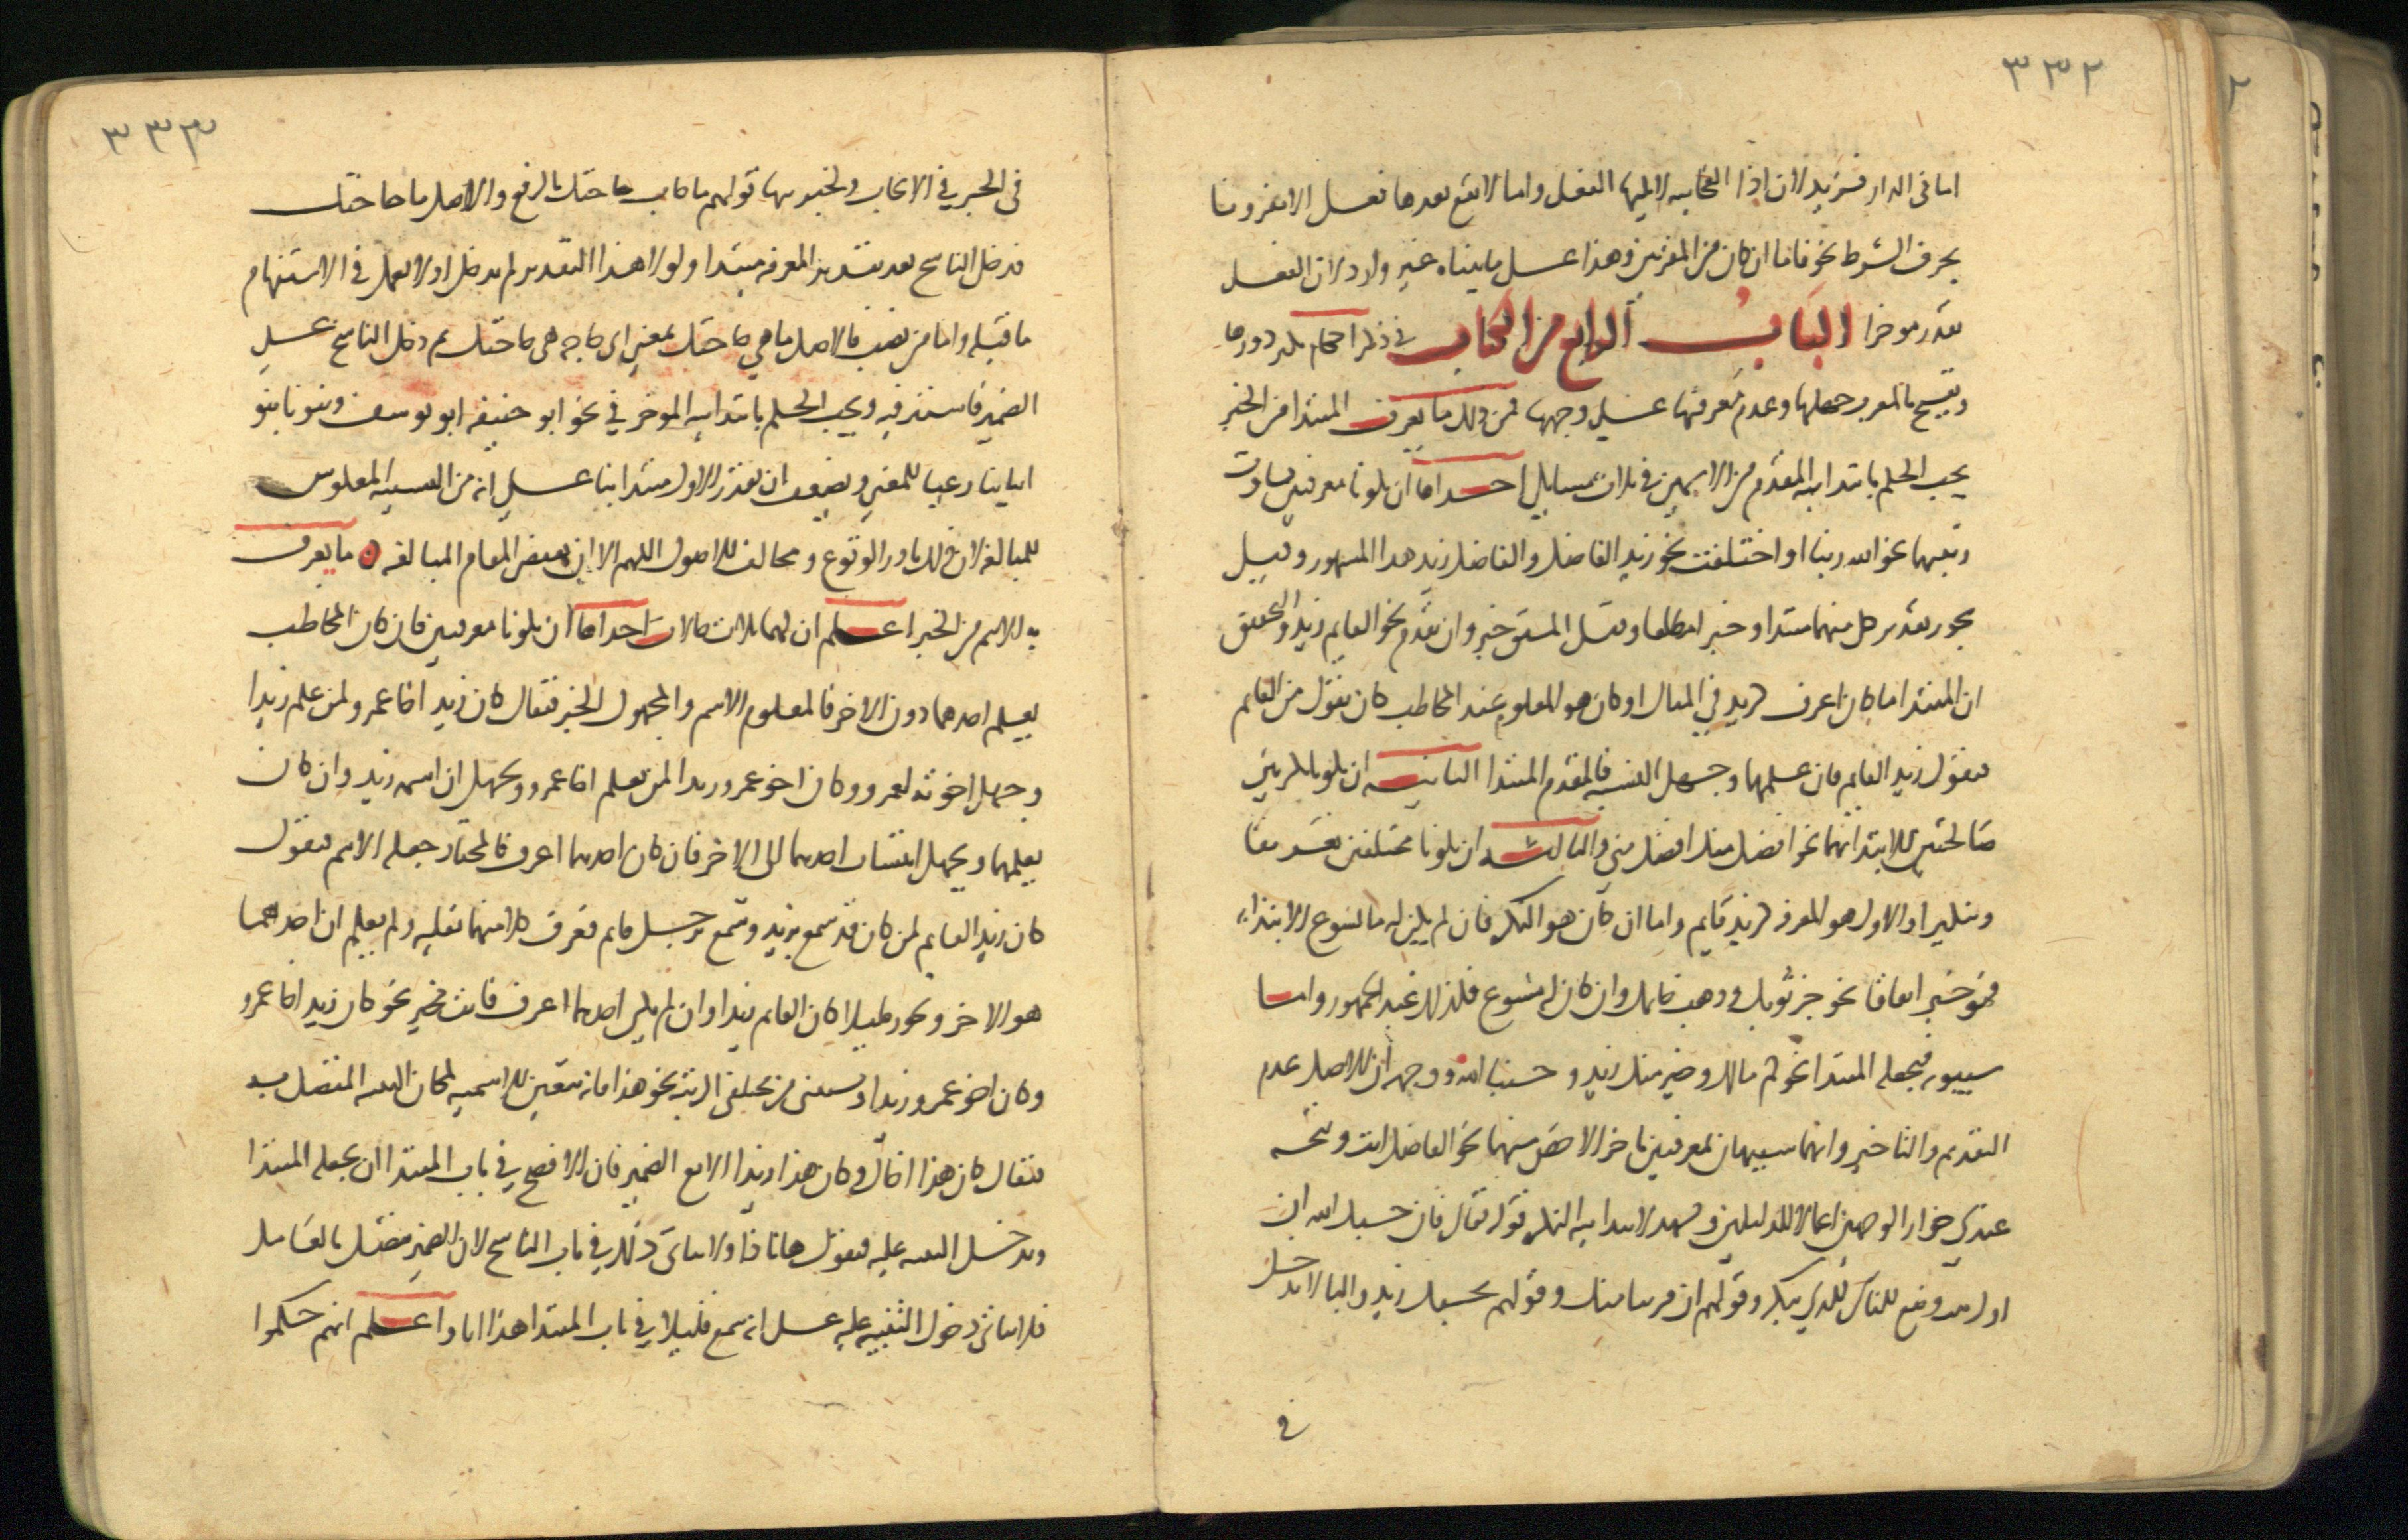 ٣٣٢
اما في الدار فزيد لان اذا الفجائية لا يليها الفعل واما لا يقع بعدها فعل الا مقرونا
بحرف الشرط نحو فاما ان كان من المقربين وهذا على ما بيناه غير وارد لان الفعل
يقدر موخرا الباب الرابع من الكتاب في ذكر احكام يكثر دورها
ويقبح بالمعرب جهلها وعدم معرفتها على وجهها فمن ذلك ما يعرف المبتدا من الخبر
يجب الحكم بابتدايية المقدم من الاسمين في ثلاث مسايل احداها ان يكونا معرفتين تساوت
رتبتهما نحو الله ربنا او اختلفت نحو زيد الفاضل والفاضل زيد هذا المشهور وقيل
يجوز تقدير كل منهما مبتدا وخبرا مطلقا وقيل المشتق خبر وان تقدم نحو القايم زيد والتحقيق
ان المبتدا ما كان اعرف كزيد في المثال او كان هو المعلوم عند المخاطب كان يقول من القايم
فيقول زيد القايم فان علمهما وجهل النسبة فالمقدم المبتدا الثانية ان يكونا نكرتين
صالحتين للابتدا بهما نحو افضل منك افضل مني والثالثة ان يكونا مختلفتين تعريفا
وتنكيرا والاول هو المعرفة كزيد قايم واما ان كان هو النكرة فان لم يكن له ما يسوغ الابتداء
فهو خبر اتفاقا نحو خز ثوبك وذهب خاتمك وان كان له مسوغ فكذلك عند الجمهور واما
سيبويه فيجعله المبتدا نحو كم مالك وخير منك زيد وحسبنا الله ووجهه ان الاصل عدم
التقديم والتاخير وانهما شبيهان بمعرفتين تاخر الاخص منهما نحو الفاضل انت ويتجه
عندي جواز الوجهين اعمالا للدليلين ويشهد لابتدايية النكرة قوله تعالى فان حسبك الله ان
اول بيت وضع للناس للذي ببكة وقولهم ان قريبا منك وقولهم بحسبك زيد والبا لا تدخل
في
٣٣٣
في الخبر في الايجاب ولخبريتها قولهم ما كانت حاجتك بالرفع والاصل ما حاجتك
فدخل الناسخ بعد تقدير المعرفة مبتدا ولولا هذا التقدير لم يدخل اذ لا يعمل في الاستفهام
ما قبله واما من نصب فالاصل ما هي حاجتك بمعنى اي حاجة هي حاجتك ثم دخل الناسخ على
الضمير فاستتر فيه ويجب الحكم بابتدايية الموخر في نحو ابو حنيفة ابو يوسف وبنونا بنو
ابناينا رعيا للمعنى ويضعف ان تقدر الاول مبتدا بنا على انه من التشبيه المعكوس
للمبالغة لان ذلك نادر الوقوع ومخالف للاصول اللهم الا ان يقتضي المقام المبالغة ما يعرف
به الاسم من الخبر اعلم ان لهما ثلاث حالات احداها ان يكونا معرفتين فان كان المخاطب
يعلم احدهما دون الاخر فالمعلوم الاسم والمجهول الخبر فيقال كان زيد اخا عمرو لمن علم زيدا
وجهل اخوته لعمرو وكان اخو عمرو زيدا لمن يعلم اخا عمرو ويجهل ان اسمه زيد وان كان
يعلمهما ويجهل انتساب احدهما الى الاخر فان كان احدهما اعرف فالمختار جعله الاسم فيقول
كان زيد القايم لمن كان قد سمع بزيد وسمع برجل قايم فعرف كلا منهما بقلبه ولم يعلم ان احدهما
هو الاخر ويجوز قليلا كان القايم زيدا وان لم يكن احدهما اعرف فانت مخير نحو كان زيد اخا عمرو
وكان اخو عمرو زيدا ويستثنى من مختلفي الرتبة نحو هذا فانه يتعين للاسمية لمكان التنبيه المتصل به
فيقال كان هذا اخاك وكان هذا زيدا الا مع الضمير فان الافصح في باب المبتدا ان يجعله المبتدا
ويدخل التنبيه عليه فيقول ها انا ذا ولا يتاتى ذلك في باب الناسخ لان الضمير متصل بالعامل
فلا يتاتى دخول التنبيه عليه على انه سمع قليلا في باب المبتدا هذا انا واعلم انهم حكموا